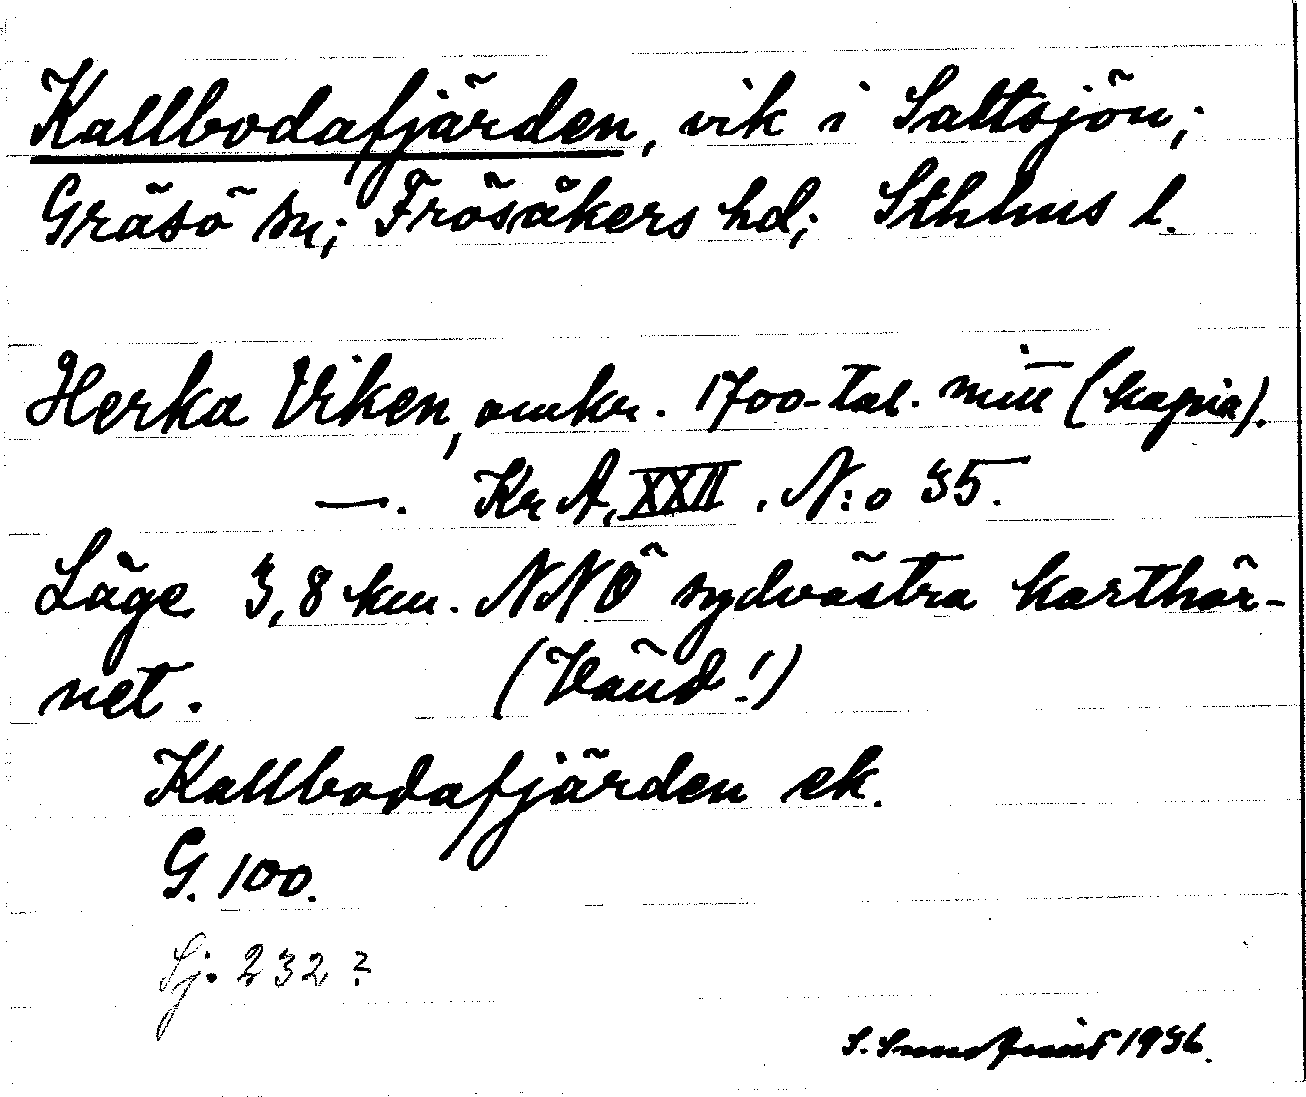 Kallbodafjärden, vik i Saltsjön;
Gräsö sn; Frösåkers hd; Sthlms l.
Herka Viken, omkr. 1700-tal. mitt (kopia).
—. Kr A, XXII. N:o 35.
Läge 3,8 km. NNÖ sydvästra karthör-
net. (Vänd!)
Kallbodafjärden ek.
G. 100.
Sj. 232?
S. 1936.